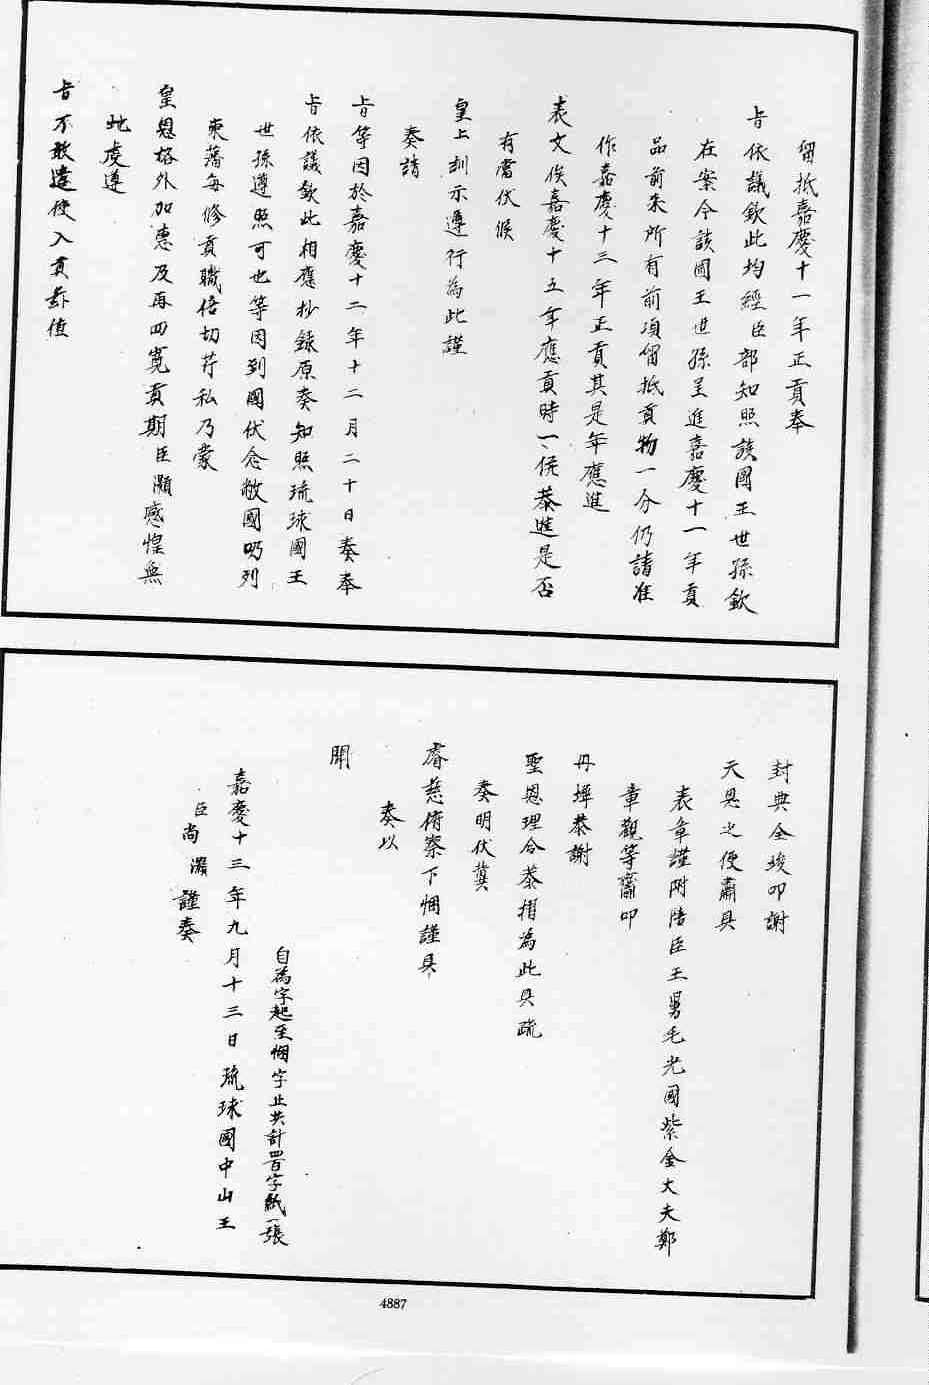 留抵嘉慶十一年正貢奉
旨依議欽此均經臣部知照該國王世孫欽
在案今該國王世孫呈進嘉慶十一年貢
品前來所有前項留抵貢物一分仍請准
作嘉慶十三年正貢其是年應進
表文俟嘉慶十五年應貢時一併恭進是否
有當伏候
皇上訓示遵行為此謹
奏請
旨等因於嘉慶十二年十二月二十日奏奉
旨依議欽此相應抄錄原奏知照琉球國王
世孫遵照可也等因到國伏念敝國叨列
東藩每修貢職倍切芹私乃蒙
皇恩格外加惠及再四寬貢期臣灝感惶無
地虔遵
旨不敢遣使入貢茲值
封典全竣叩謝
天恩之便肅具
表章謹附陪臣王舅毛光國紫金大夫鄭
章觀等齎叩
丹墀恭謝
聖恩理合恭摺為此具疏
奏明伏冀
睿慈俯察下悃謹具
奏以
聞
自為字起至悃字止共計四百字紙一張
嘉慶十三年九月十三日琉球國中山王
臣尚灝謹奏
4887